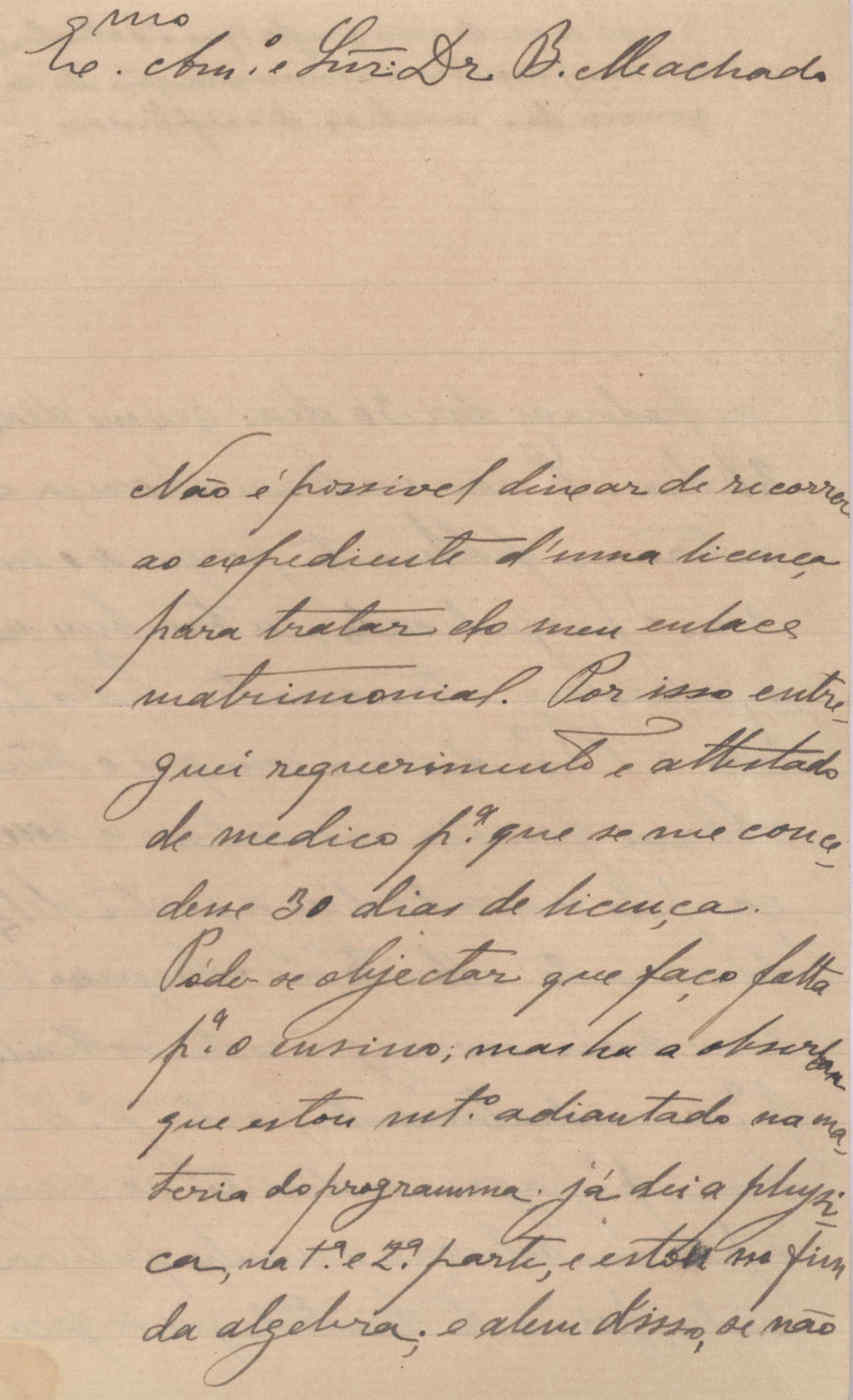 Ex.mo Am.º e Snr. Dr. B. Machado
Não é possivel deixar de recorrer
ao expediente d'uma licença
para tratar do meu enlace
matrimonial. Por isso entre-
guei requerimento e attestado
de medico p.ª que se me conce-
desse 30 dias de licença.
Póde-se objectar que faço falta
p.ª o ensino; mas ha a observar
que estou mt.º adiantado na ma-
teria do programma. já dei a physi-
ca, na 1.ª e 2.ª parte, e estou no fim
da algebra; e alem d'isso, se não